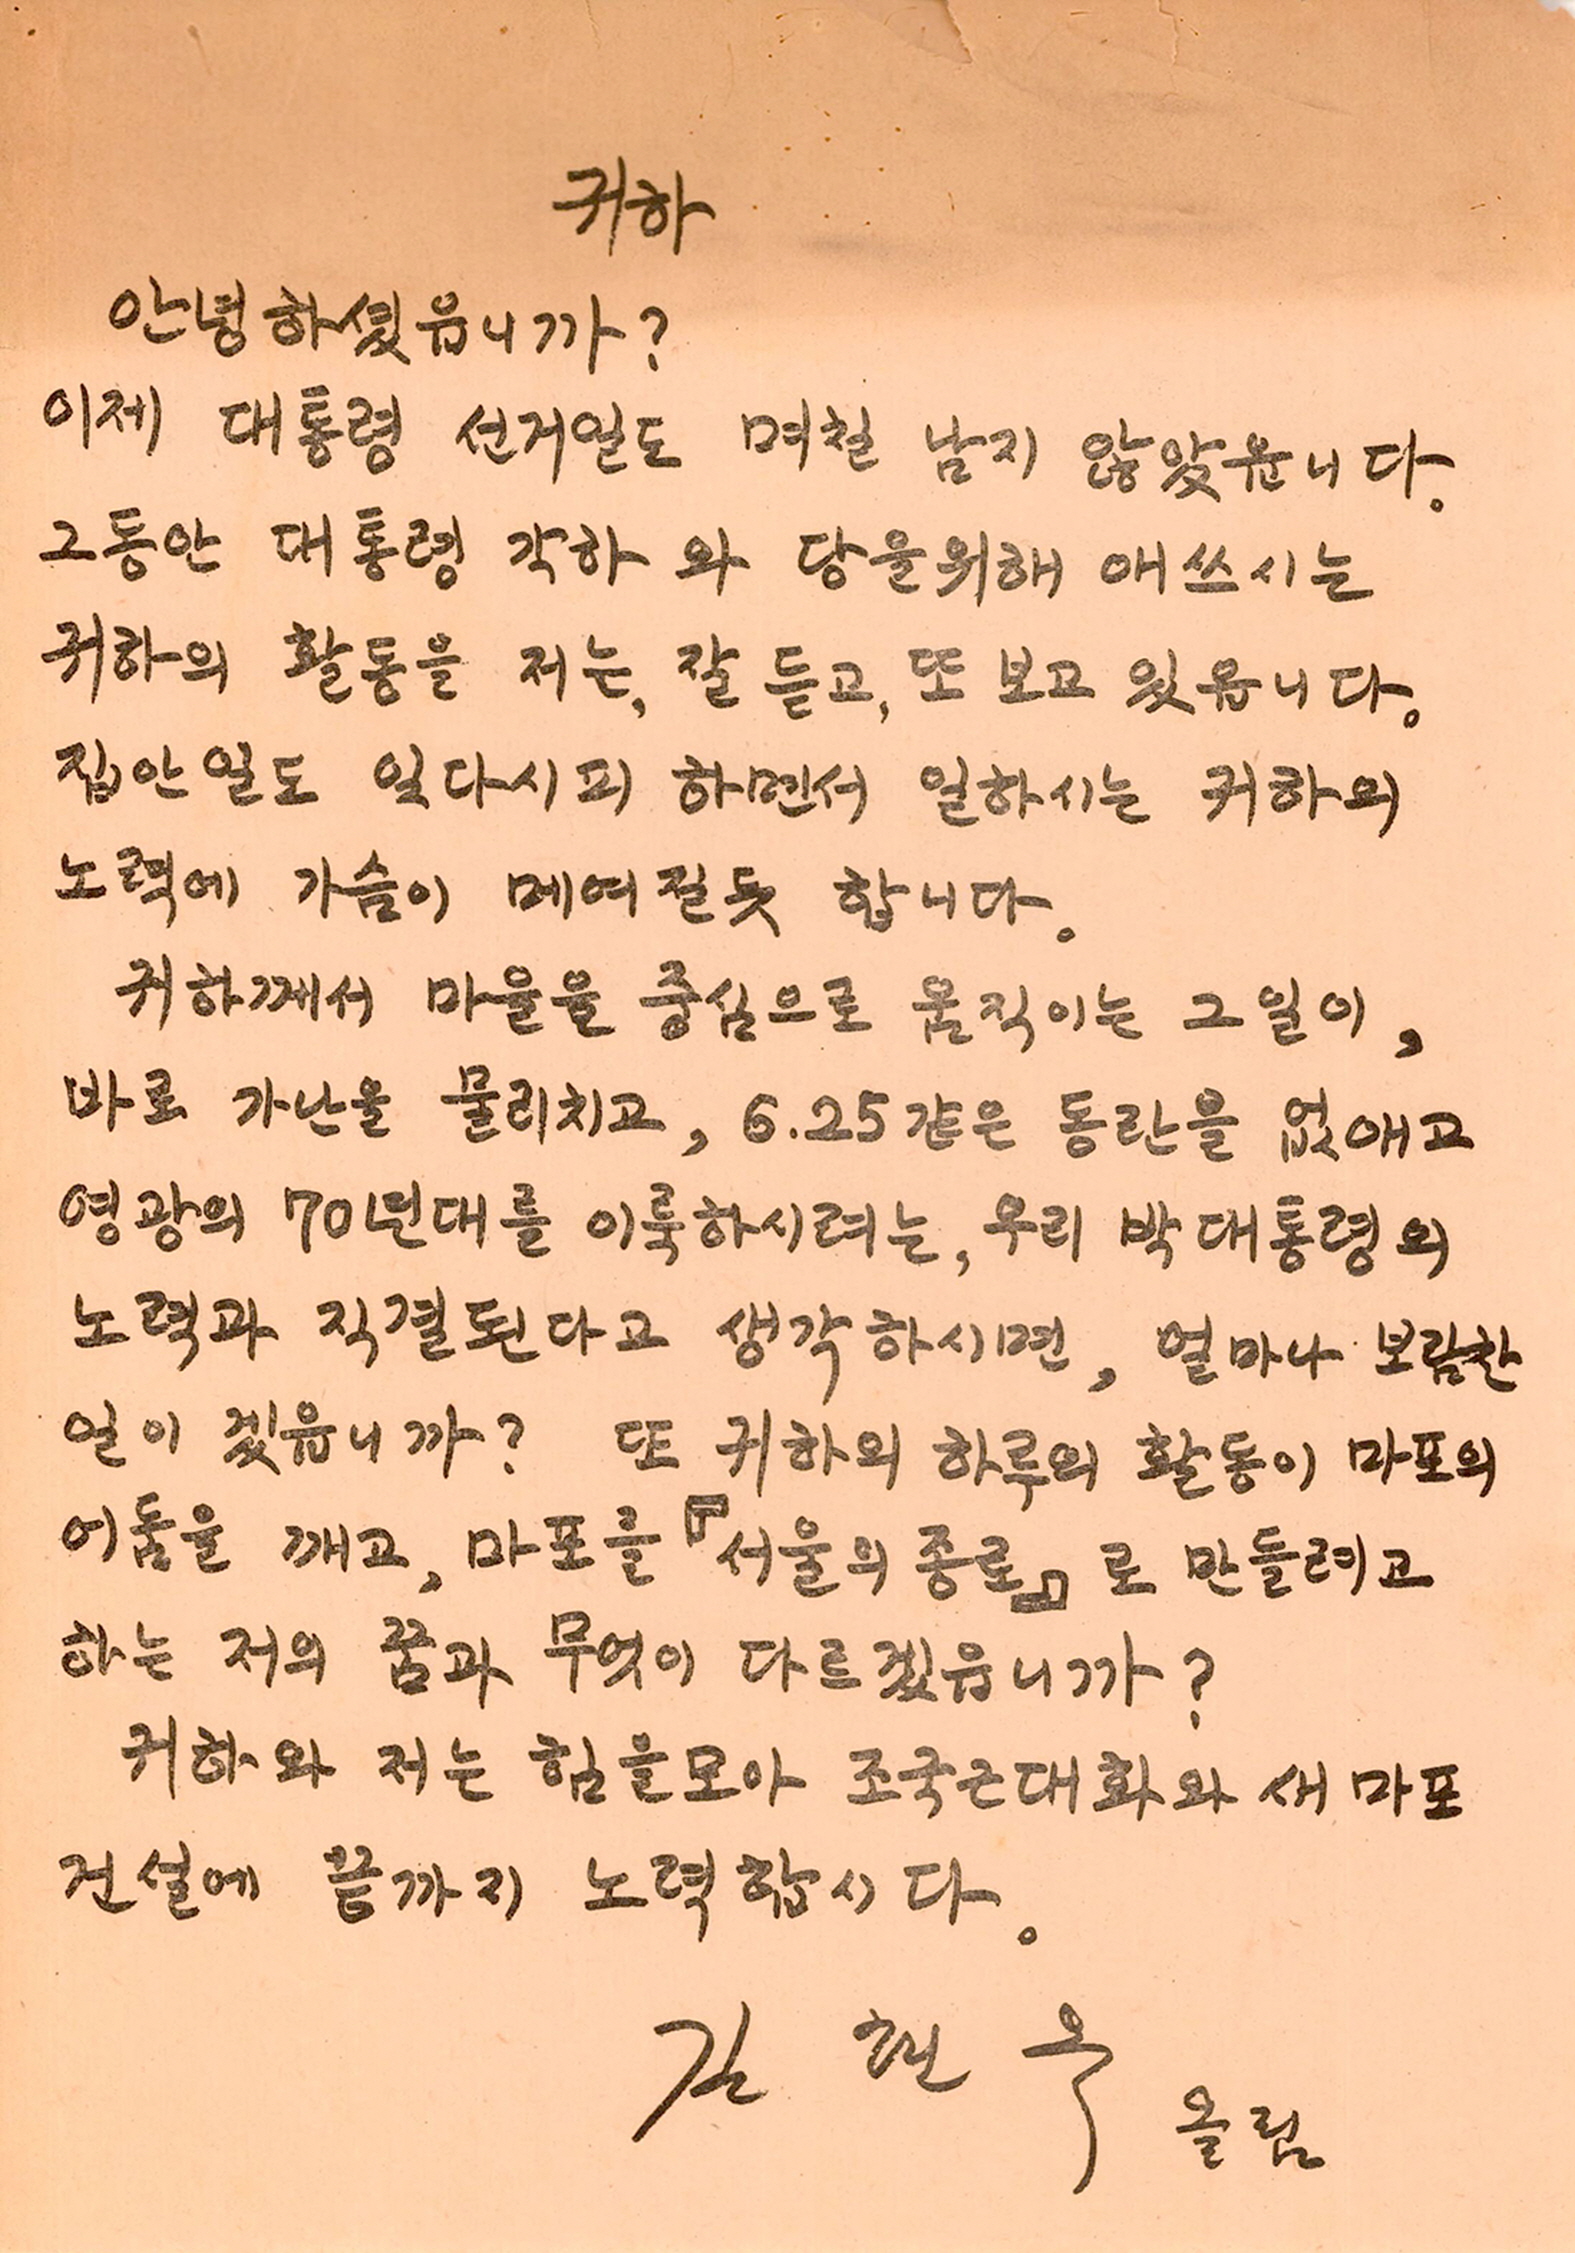 귀하
안녕하셨읍니까?
이제 대통령 선거일도 며칠 남지 않았읍니다.
그동안 대통령 각하 와 당을위해 애쓰시는
귀하의 활동을 저는, 잘 듣고, 또 보고 있읍니다.
집안일도 잊다시피 하면서 일하시는 귀하의
노력에 가슴이 메여질듯 합니다.
귀하께서 마을을 중심으로 움직이는 그일이,
바로 가난을 물리치고, 6.25같은 동란을 없애고
영광의 70년대를 이룩하시려는, 우리 박대통령의
노력과 직결된다고 생각하시면, 얼마나 보람찬
일이 겠읍니까? 또 귀하의 하루의 활동이 마포의
어둠을 깨고, 마포를 『서울의 종로』로 만들려고
하는 저의 꿈과 무엇이 다르겠읍니까?
귀하와 저는 힘을모아 조국근대화와 새마포
건설에 끝까지 노력합시다.
김 현 옥
올림